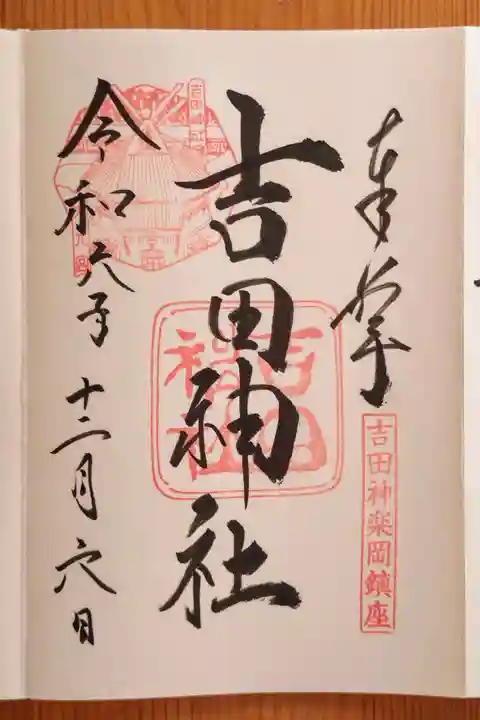 奉拝
吉田神楽岡鎮座
吉田神社
吉田神社
令和六年
十二月六日